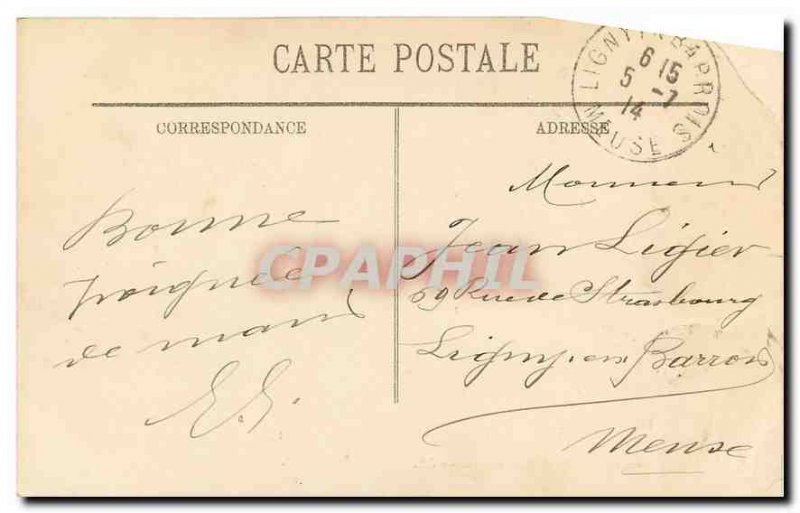 CARTE POSTALE
LIGNY-EN-BARROIS
6 15
5 -7
14
MEUSE
CORRESPONDANCE
ADRESSE
Bonne
poignée
de main
E. G.
Monsieur
Jean Ligier
69 Rue de Strasbourg
Ligny-en-Barrois
Meuse
CPAPHIL